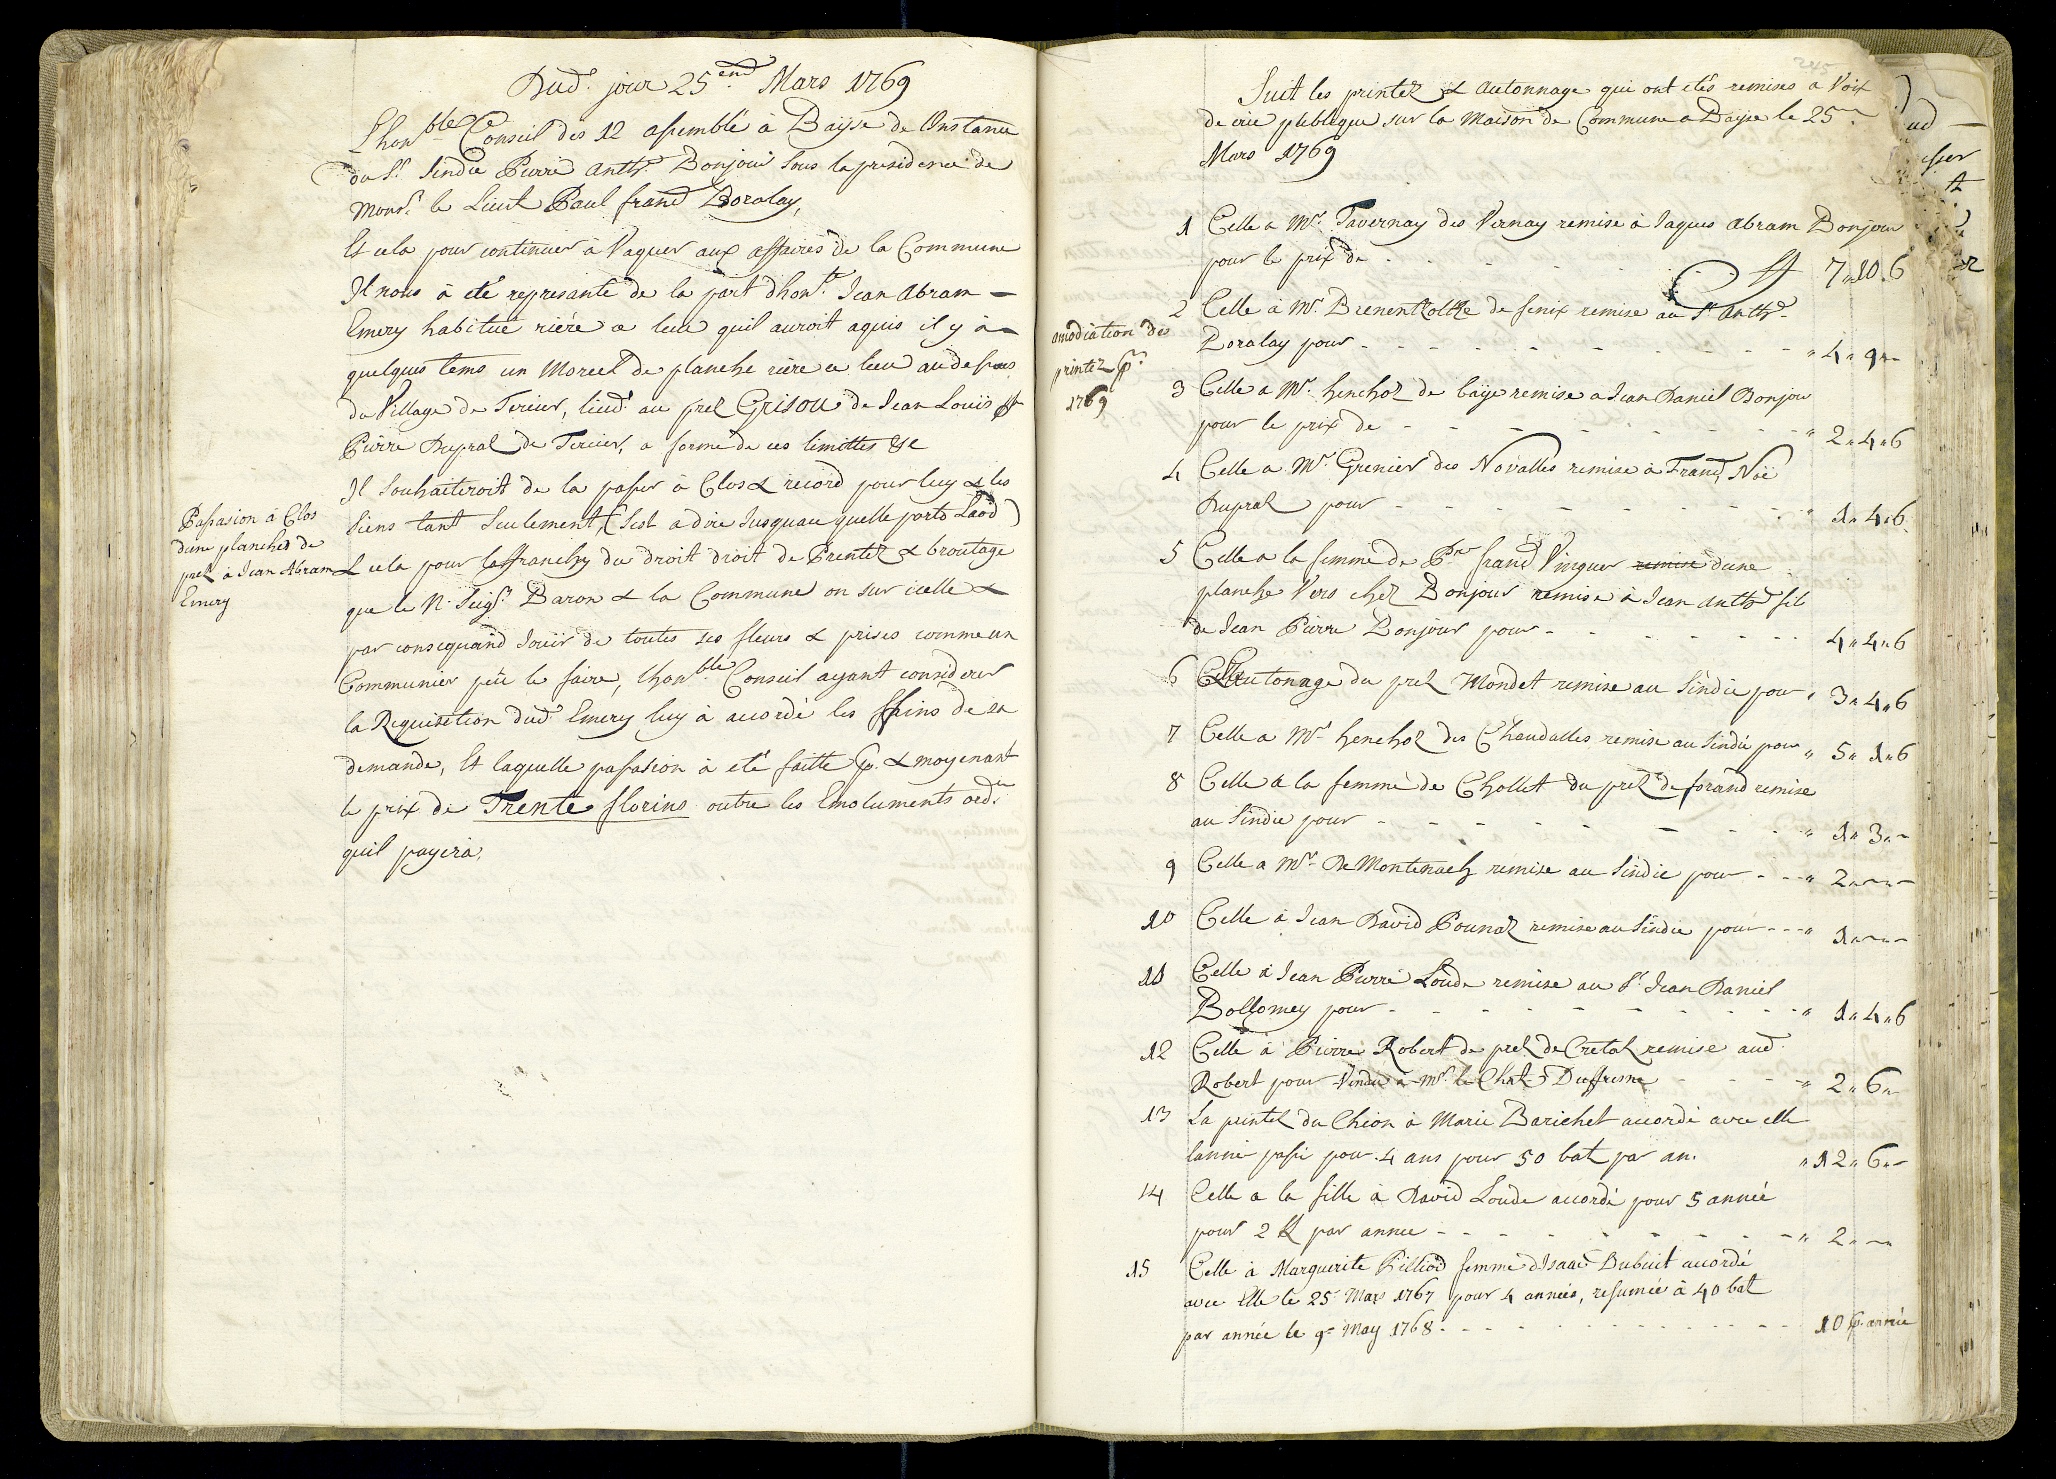 Dud. jour 25.end Mars 1769
Lhon.ble Conseil des 12 assemblé à Bayse de Onstance
du Sr. Sindic Pierre Anth.e Bonjour Sous la presidence de
Monsr. le Lieut Paul frand Doralay,
Et cela pour continuer à Vaquer aux affaires de la Commune
Il nous à eté represanté de la part dhon.te Jean Abram
Emery habitué riére ce lieu quil auroit aquis il y à
quelques tems un Morcel de planche riére ce lieu audessous
du Village de Tercier, lieud. au prel Grisou de Jean Louis ff
Pierre Dupral de Tercier, a forme de ces limittes &c
Il Souhaiteroit de la passer à Clos & record pour luy & les
Siens tant Seulement, (Sest a dire Jusquau quelle porte Laod)
& cela pour laffranchy du droit droit de Prentel & broutage
que le N. Seigr. Baron & la Commune on sur icelle &
par consequand Jouir de toutes ses fleurs & prises comme un
Communier peü le faire, lhon.ble Conseil ayant considerer
la Requisition dud. Emery luy à accordé les ffins de sa
demande, Et laquelle passasion à eté faitte p. & moyenant
le prix de Trente florins outre les Emoluments ord.re
quil payera.
Passasion à Clos
dune planches de
prel à Jean Abram
Emery
245
Suit les printel & Autonnage qui ont etés remises a Voix
de crie publique sur la Maison de Commune a Bayse le 25.me
Mars 1769
amodiation des
printel p.r
1769
1 Celle a Mr. Tavernay des Vernay remise à Jaques Abram Bonjour
pour le prix de - - - ff 7„10„6
2 Celle à Mr. Brenentzolle de fenix remise au Sr. Anth.e
Doralay pour - - - „ 4„9„-
3 Celle a Mr. henchoz de bayse remise a Jean Daniel Bonjou
pour le prix de - - - „ 2„4„6
4 Celle a Mr. Grenier des Novalles remise à Frand. Noë
Dupral pour - - - „ 1„4„6
5 Celle a la femme de Pre frand Vinguer remise dune
planche Vers chez Bonjour remise à Jean Anth.e fil
de Jean Pierre Bonjour pour - - - 4„4„6
6 Celle Autonnage du prel Mondet remise au Sindic pour „ 3„4„6
7 Celle a Mr. henchoz des Chaudalles remise au Sindic pour „ 5„1„6
8 Celle a la femme de Chollet du prel de forand remise
au Sindic pour - - - „ 1„3„-
9 Celle a Mr. De Montenach remise au Sindic pour - - - „ 2„-„-
10 Celle à Jean David Pounaz remise au Sindic pour - - - „ 1„-„-
11 Celle à Jean Pierre Loude remise au Sr. Jean Daniel
Bollomey pour - - - „ 1„4„6
12 Celle à Pierre Robert de prel de Cretol remise aud.
Robert pour Vendu à Mr. le Chat. Duffresne - - - „ 2„6„-
13 La printel du Chion à Marie Barichet accordé avec elle
lannée passé pour 4 ans pour 50 bat par an. „ 12„6„-
14 Celle a la fille à David Loude accordé pour 5 année
pour 2 ff par annee - - - „ 2„-„-
15 Celle à Marguerite Pilliod femme dIsaac Dubuit accordé
avec Elle le 25e Mars 1767 pour 4 années, resumée à 40 bat
par année le 9e May 1768 - - - 10 p. année